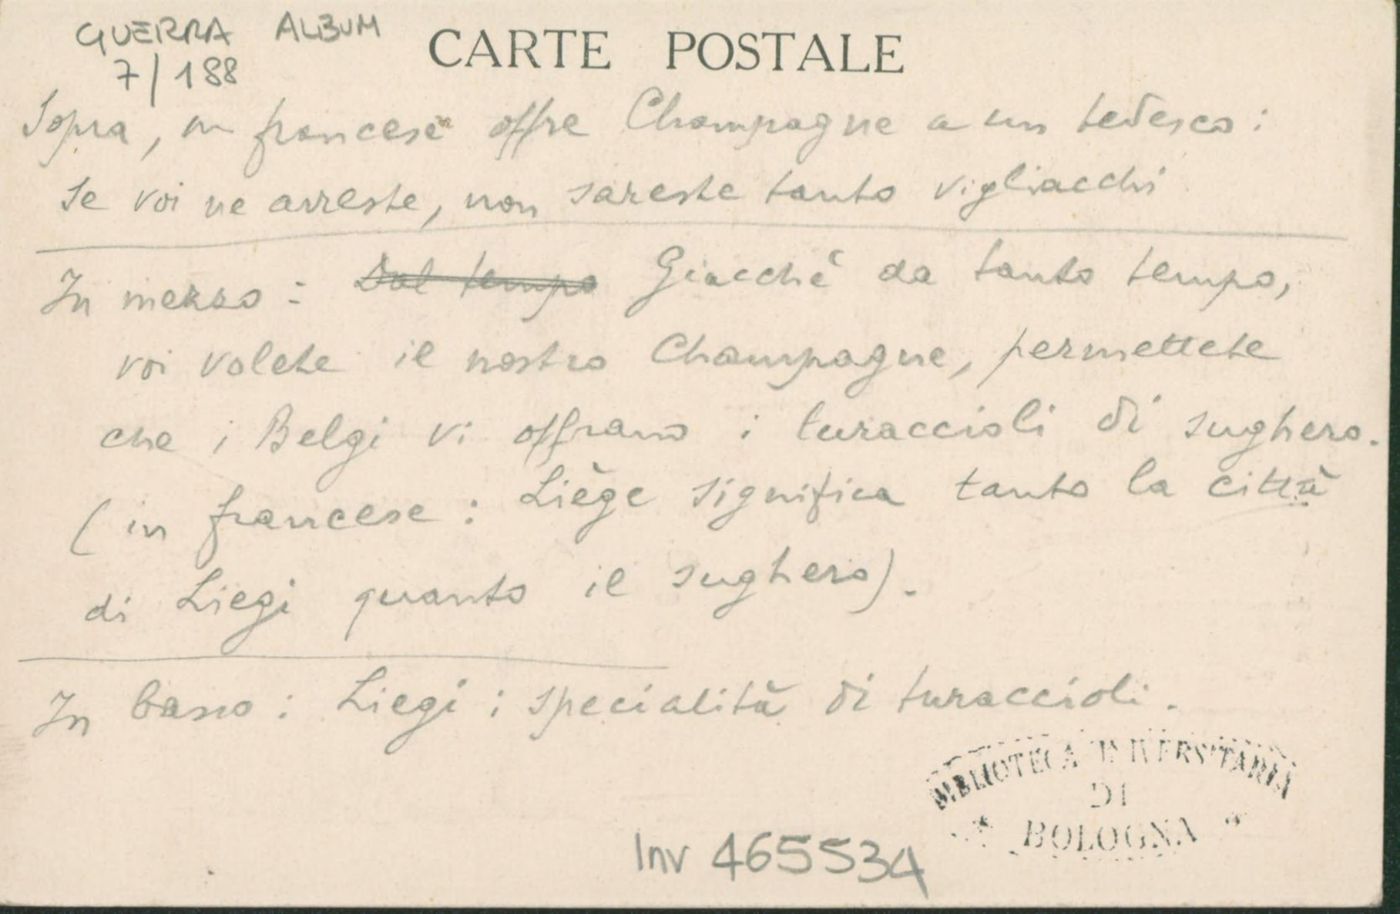 GUERRA ALBUM
7/188
CARTE POSTALE
Sopra, un francese offre Champagne a un tedesco:
Se voi ne avreste, non sareste tanto vigliacchi
In mezzo: Dal tempo Giacchè da tanto tempo,
voi volete il nostro Champagne, permettete
che i Belgi vi offrano i turaccioli di sughero.
(in francese: Liège significa tanto la città
di Liegi quanto il sughero).
In basso: Liegi: specialità di turaccioli.
BIBLIOTECA UNIVERSITARIA
DI
BOLOGNA
Inv 465534